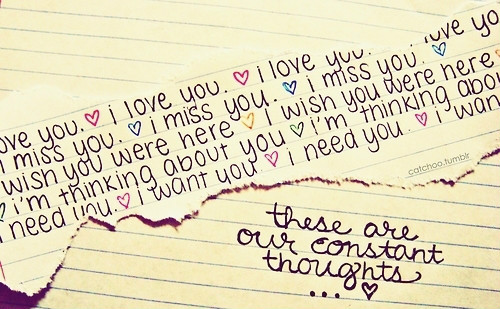 ove you. ♡ i love you. ♡ i love you. i love yo
i miss you. ♡ i miss you. ♡ i miss you. ♡
wish you were here ♡ i wish you were here ♡
♡ i'm thinking about you ♡ i'm thinking abou
i need you. ♡ i want you ♡ i need you. ♡ i wan
catchoo.tumblr
these are
our constant
thoughts
... ♡